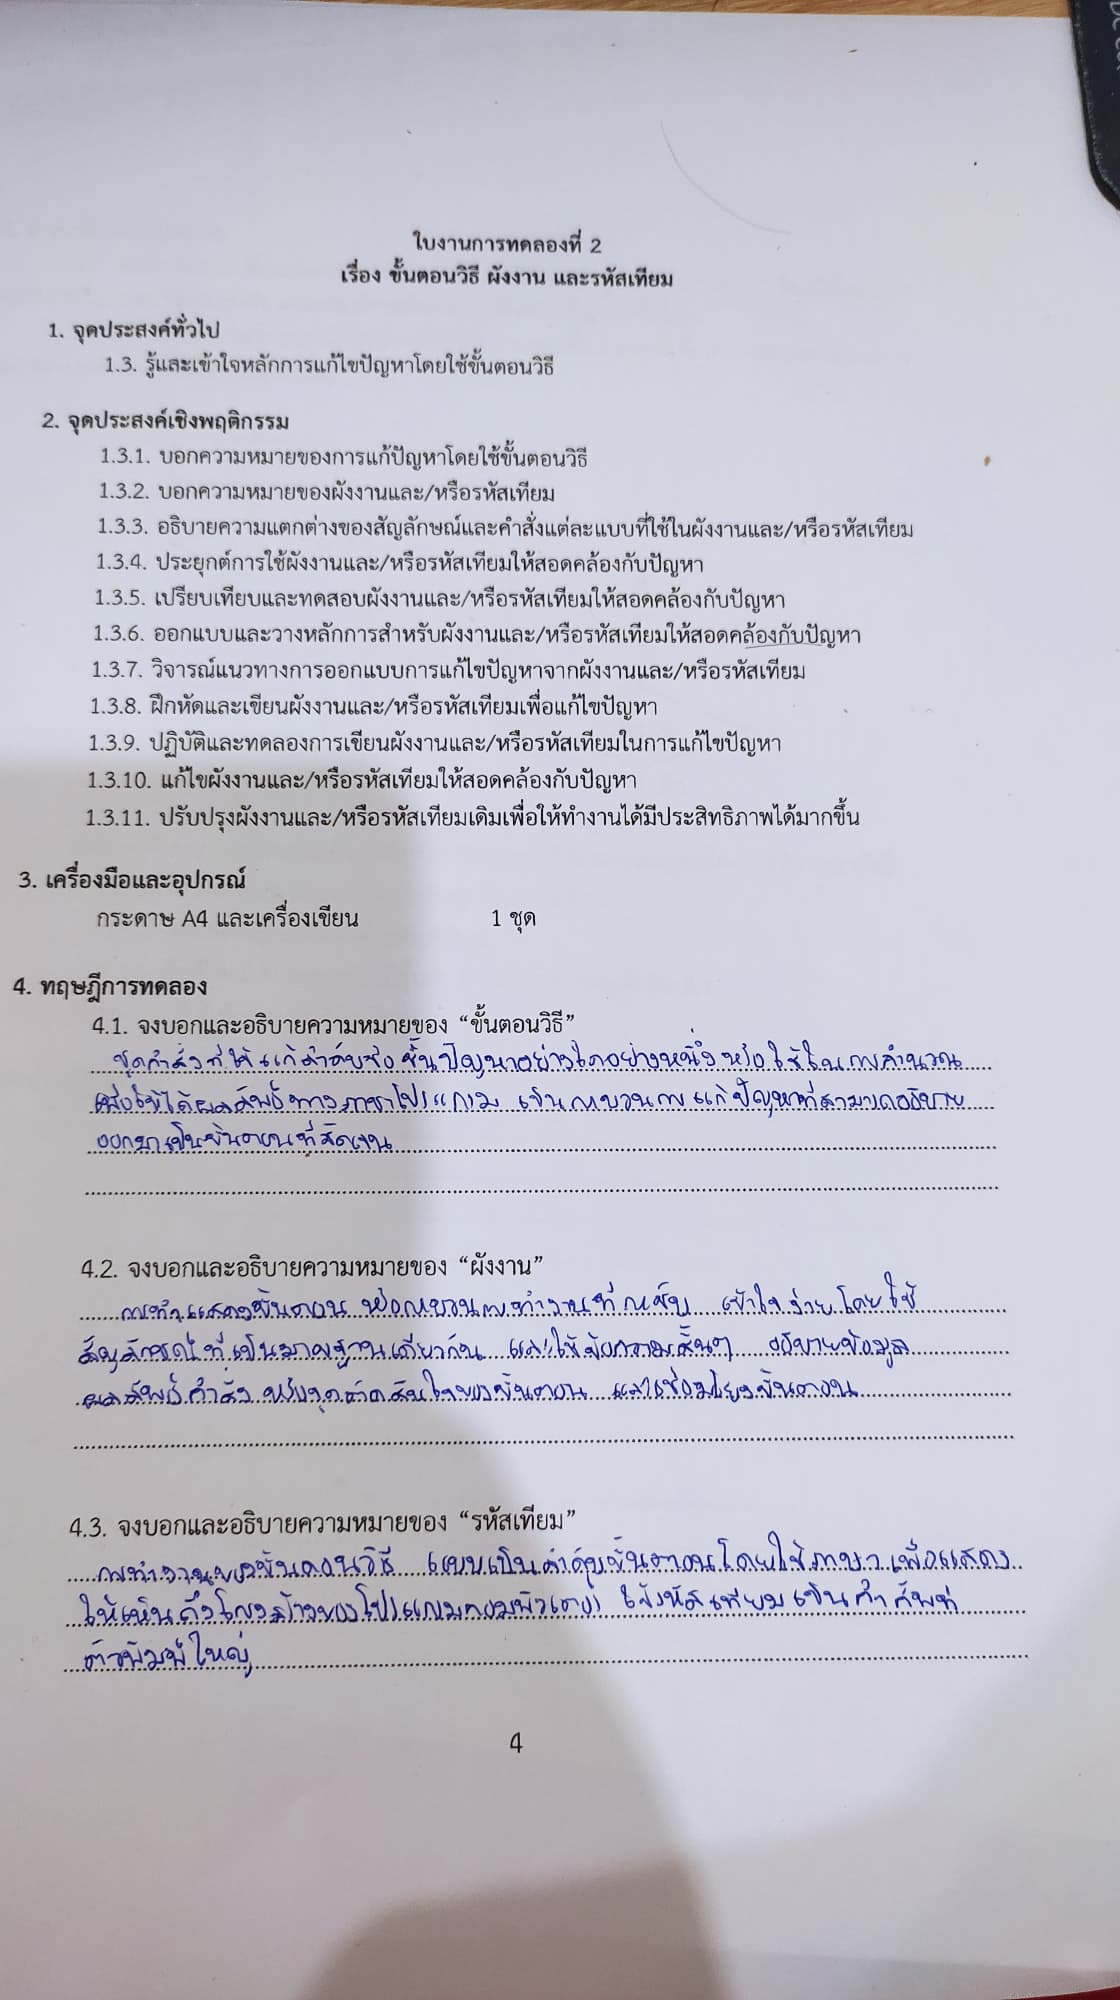 ใบงานการทดลองที่ 2
เรื่อง ขั้นตอนวิธี ผังงาน และรหัสเทียม
1. จุดประสงค์ทั่วไป
1.3. รู้และเข้าใจหลักการแก้ไขปัญหาโดยใช้ขั้นตอนวิธี
2. จุดประสงค์เชิงพฤติกรรม
1.3.1. บอกความหมายของการแก้ปัญหาโดยใช้ขั้นตอนวิธี
1.3.2. บอกความหมายของผังงานและ/หรือรหัสเทียม
1.3.3. อธิบายความแตกต่างของสัญลักษณ์และคำสั่งแต่ละแบบที่ใช้ในผังงานและ/หรือรหัสเทียม
1.3.4. ประยุกต์การใช้ผังงานและ/หรือรหัสเทียมให้สอดคล้องกับปัญหา
1.3.5. เปรียบเทียบและทดสอบผังงานและ/หรือรหัสเทียมให้สอดคล้องกับปัญหา
1.3.6. ออกแบบและวางหลักการสำหรับผังงานและ/หรือรหัสเทียมให้สอดคล้องกับปัญหา
1.3.7. วิจารณ์แนวทางการออกแบบการแก้ไขปัญหาจากผังงานและ/หรือรหัสเทียม
1.3.8. ฝึกหัดและเขียนผังงานและ/หรือรหัสเทียมเพื่อแก้ไขปัญหา
1.3.9. ปฏิบัติและทดลองการเขียนผังงานและ/หรือรหัสเทียมในการแก้ไขปัญหา
1.3.10. แก้ไขผังงานและ/หรือรหัสเทียมให้สอดคล้องกับปัญหา
1.3.11. ปรับปรุงผังงานและ/หรือรหัสเทียมเดิมเพื่อให้ทำงานได้มีประสิทธิภาพได้มากขึ้น
3. เครื่องมือและอุปกรณ์
กระดาษ A4 และเครื่องเขียน 1 ชุด
4. ทฤษฎีการทดลอง
4.1. จงบอกและอธิบายความหมายของ “ขั้นตอนวิธี”
ชุดคำสั่งที่ใช้แก้ ปัญหาอย่างใดอย่างหนึ่ง หรือ ใช้ในการคำนวณ
เพื่อให้ได้ผลลัพธ์ทางภาษาโปรแกรม เป็นกระบวนการแก้ปัญหาที่สามารถอธิบาย
ออกมาเป็นขั้นตอนที่ชัดเจน
4.2. จงบอกและอธิบายความหมายของ “ผังงาน”
การทำแสดงขั้นตอน หรือกระบวนการทำงานที่กระชับ เข้าใจง่าย โดยใช้
สัญลักษณ์ที่เป็นมาตรฐานเดียวกัน และใช้ข้อความสั้นๆ อธิบายข้อมูล
ผลลัพธ์ คำสั่ง หรือจุดตัดสินใจของขั้นตอน และเชื่อมโยงขั้นตอน
4.3. จงบอกและอธิบายความหมายของ “รหัสเทียม”
การทำงานของขั้นตอนวิธี แบบเป็นลำดับขั้นตอนโดยใช้ภาษา เพื่อแสดง
ให้เห็นถึงโครงสร้างของโปรแกรมคอมพิวเตอร์ ใช้รหัสเทียม เป็นคำศัพท์
ตัวพิมพ์ใหญ่
4